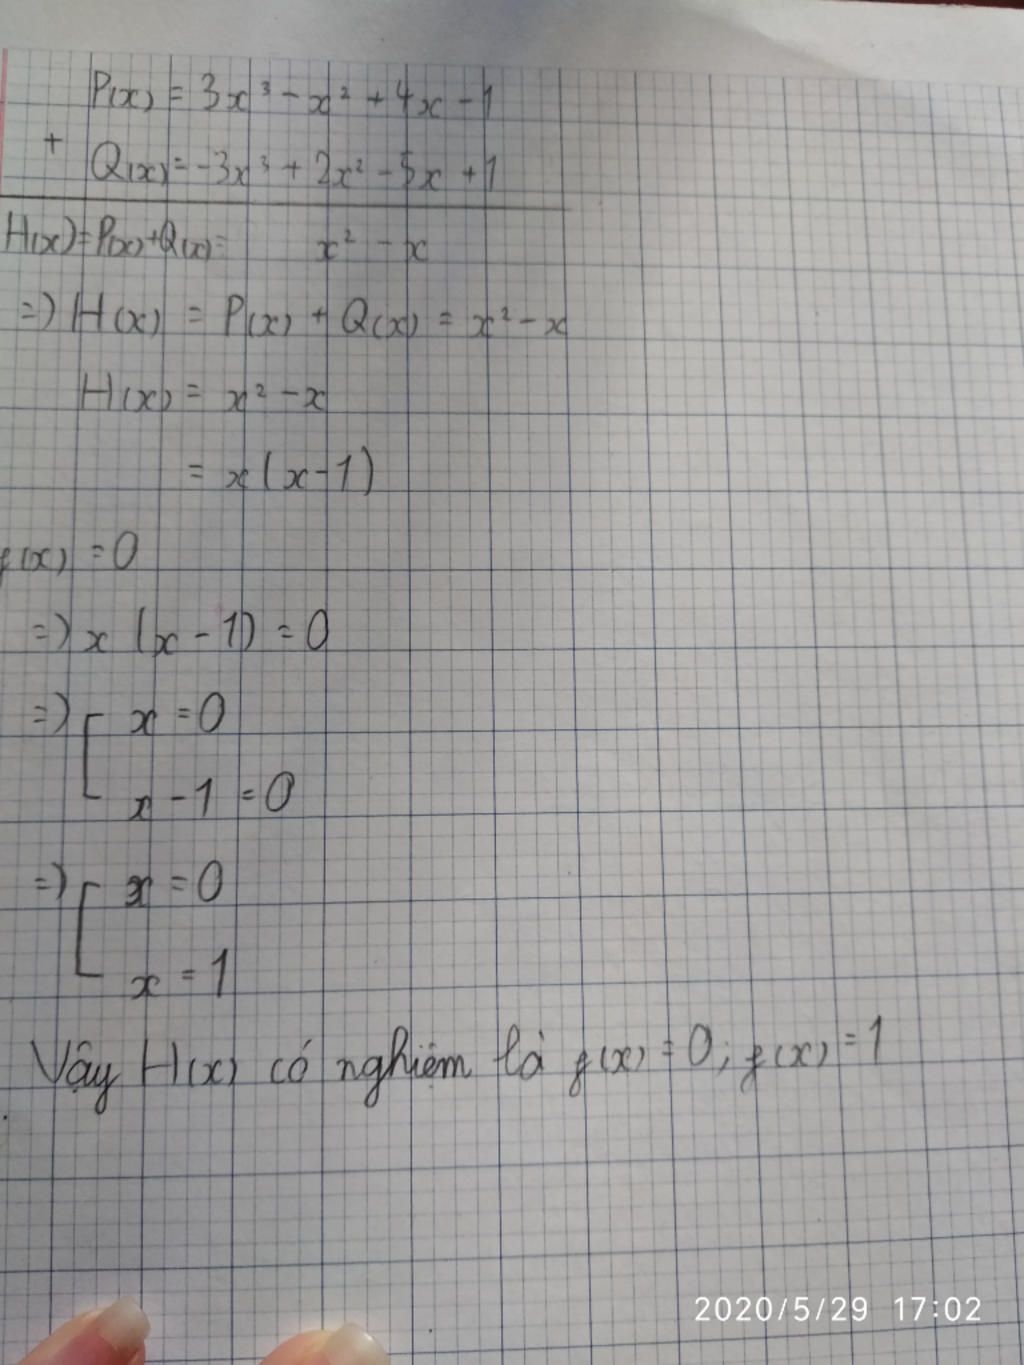 P(x) = 3x³ - x² + 4x - 1
+
Q(x) = -3x³ + 2x² - 5x + 1
H(x) = P(x) + Q(x) = x² - x
=> H(x) = P(x) + Q(x) = x² - x
H(x) = x² - x
= x(x-1)
f(x) = 0
=> x (x - 1) = 0
=> [ x = 0
x - 1 = 0
=> [ x = 0
x = 1
Vậy H(x) có nghiệm là f(x) = 0; f(x) = 1
2020/5/29 17:02